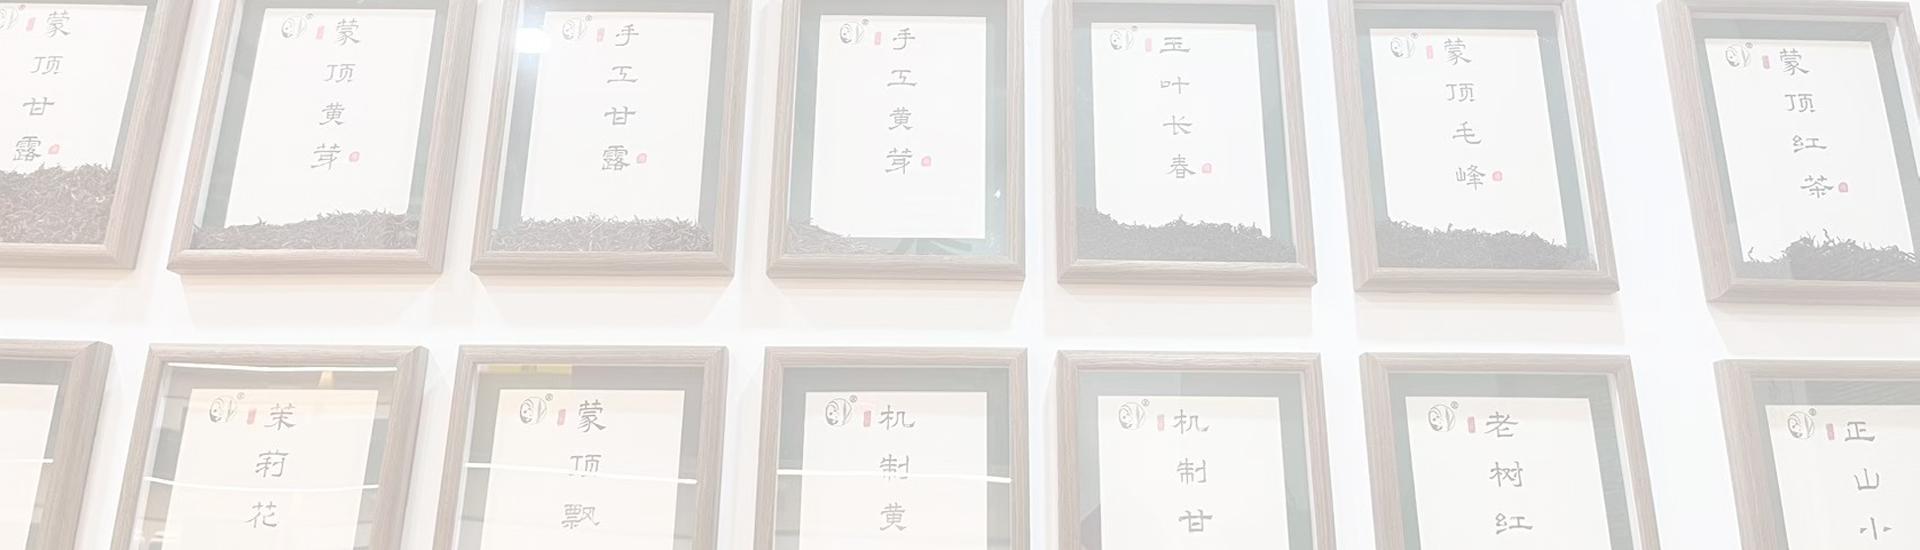 蒙顶甘露
蒙顶黄芽
手工甘露
手工黄芽
玉叶长春
蒙顶毛峰
蒙顶红茶
茉莉花
蒙顶飘
机制黄
机制甘
老树红
正山小